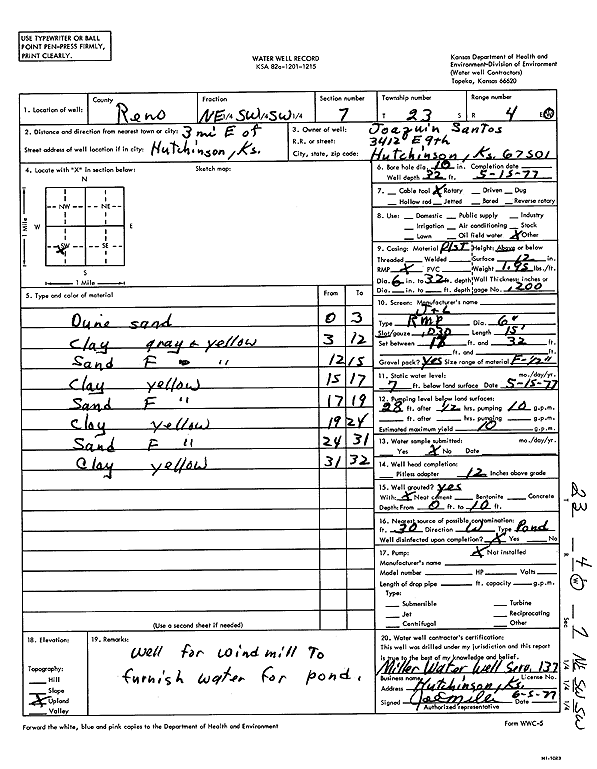 USE TYPEWRITER OR BALL
POINT PEN-PRESS FIRMLY,
PRINT CLEARLY.
WATER WELL RECORD
KSA 82a-1201-1215
Kansas Department of Health and
Environment-Division of Environment
(Water well Contractors)
Topeka, Kansas 66620
1. Location of well: County Reno Fraction NE 1/4 SW 1/4 SW 1/4 Section number 7 Township number T 23 S Range number R 4 E/W
2. Distance and direction from nearest town or city: 3 mi E of
Street address of well location if in city: Hutchinson, Ks.
3. Owner of well: Joaquin Santos
R.R. or street: 3412 E 9th
City, state, zip code: Hutchinson, Ks. 67501
4. Locate with "X" in section below: Sketch map:
N
NW NE
W E
SW SE
S
1 Mile
1 Mile
5. Type and color of material From To
Dune sand 0 3
Clay gray & yellow 3 12
Sand F " 12 15
Clay yellow 15 17
Sand F " 17 19
Clay yellow 19 24
Sand F " 24 31
Clay yellow 31 32
(Use a second sheet if needed)
6. Bore hole dia. 10 in. Completion date
Well depth 32 ft. 5-15-77
7. Cable tool X Rotary Driven Dug
Hollow rod Jetted Bored Reverse rotary
8. Use: Domestic Public supply Industry
Irrigation Air conditioning Stock
Lawn Oil field water X Other
9. Casing: Material Plst Height: Above or below
Threaded Welded Surface 12 in.
RMP X PVC Weight 1.95 lbs./ft.
Dia. 6 in. to 32 ft. depth Wall Thickness: inches or
Dia. in. to ft. depth gage No. .200
10. Screen: Manufacturer's name
J+L
Type RMP Dia. 6"
Slot/gauze .030 Length 15'
Set between 18 ft. and 32 ft.
ft. and ft.
Gravel pack? yes Size range of material F-1/2"
11. Static water level: mo./day/yr.
7 ft. below land surface Date 5-15-77
12. Pumping level below land surfaces:
28 ft. after 1/2 hrs. pumping 10 g.p.m.
ft. after hrs. pumping g.p.m.
Estimated maximum yield 10 g.p.m.
13. Water sample submitted: mo./day/yr.
Yes X No Date
14. Well head completion:
Pitless adapter 12 Inches above grade
15. Well grouted? yes
With: X Neat cement Bentonite Concrete
Depth: From 0 ft. to 10 ft.
16. Nearest source of possible contamination:
ft. 30 Direction W Type Pond
Well disinfected upon completion? X Yes No
17. Pump: X Not installed
Manufacturer's name
Model number HP Volts
Length of drop pipe ft. capacity g.p.m.
Type:
Submersible Turbine
Jet Reciprocating
Centrifugal Other
18. Elevation:
Topography:
Hill
Slope
X Upland
Valley
19. Remarks:
well for windmill To
furnish water for pond.
20. Water well contractor's certification:
This well was drilled under my jurisdiction and this report
is true to the best of my knowledge and belief.
Miller Water Well Serv. 137
Business name License No.
Address Hutchinson, Ks.
Signed Joe Miller 6-5-77
Authorized representative
Forward the white, blue and pink copies to the Department of Health and Environment
Form WWC-5
T 23 R 4 W Sec 7 1/4 NE 1/4 SW 1/4 SW